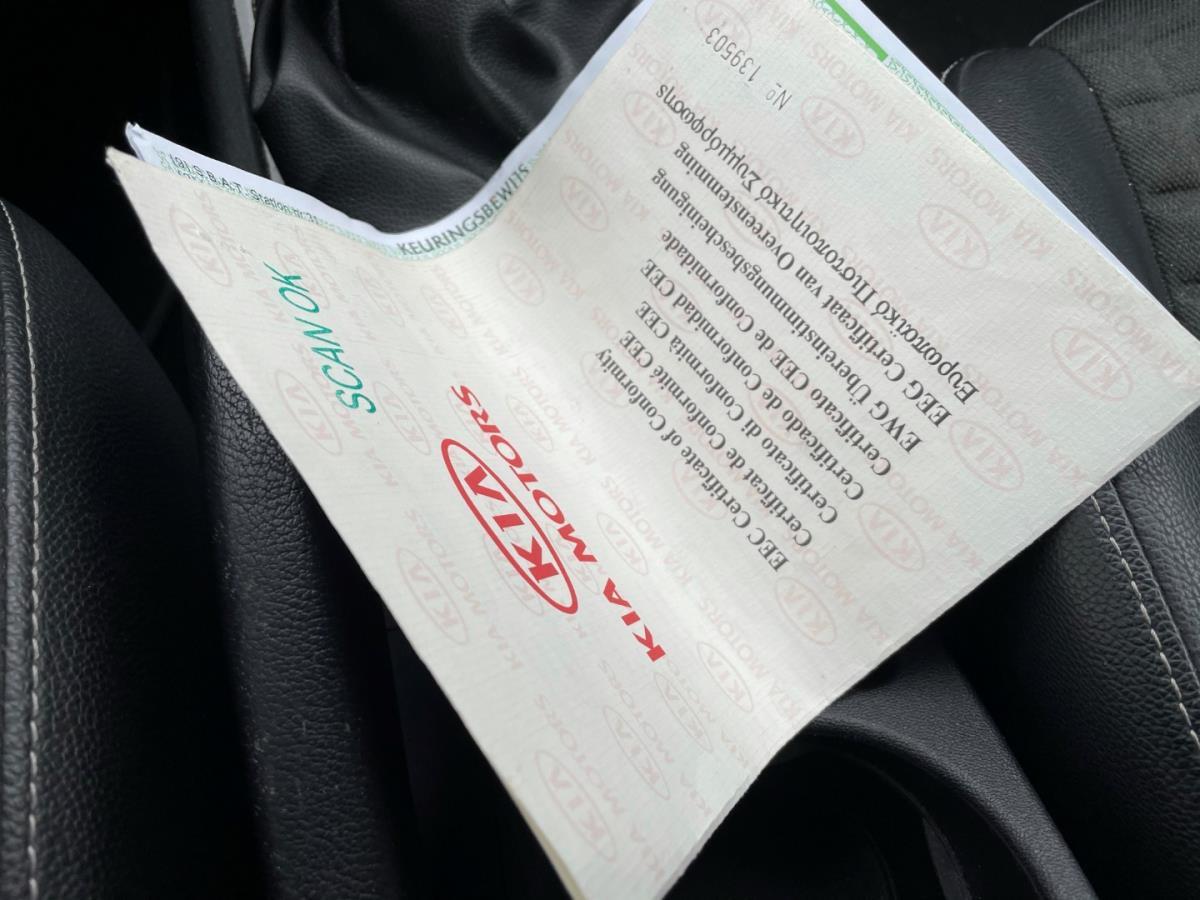 KIA
KIA MOTORS
EEC Certificate of Conformity
Certificat de Conformité CEE
Certificato di Conformità CEE
Certificado de Conformidad CEE
Certificato CEE de Conformidade
EWG Übereinstimmungsbescheinigung
EEG Certificaat van Overeenstemming
Ευρωπαϊκό Πιστοποιητικό Συμμόρφωσης
Nº 139503
SCAN OK
KEURINGSBEWIJS
S.B.A.T. Station nr.